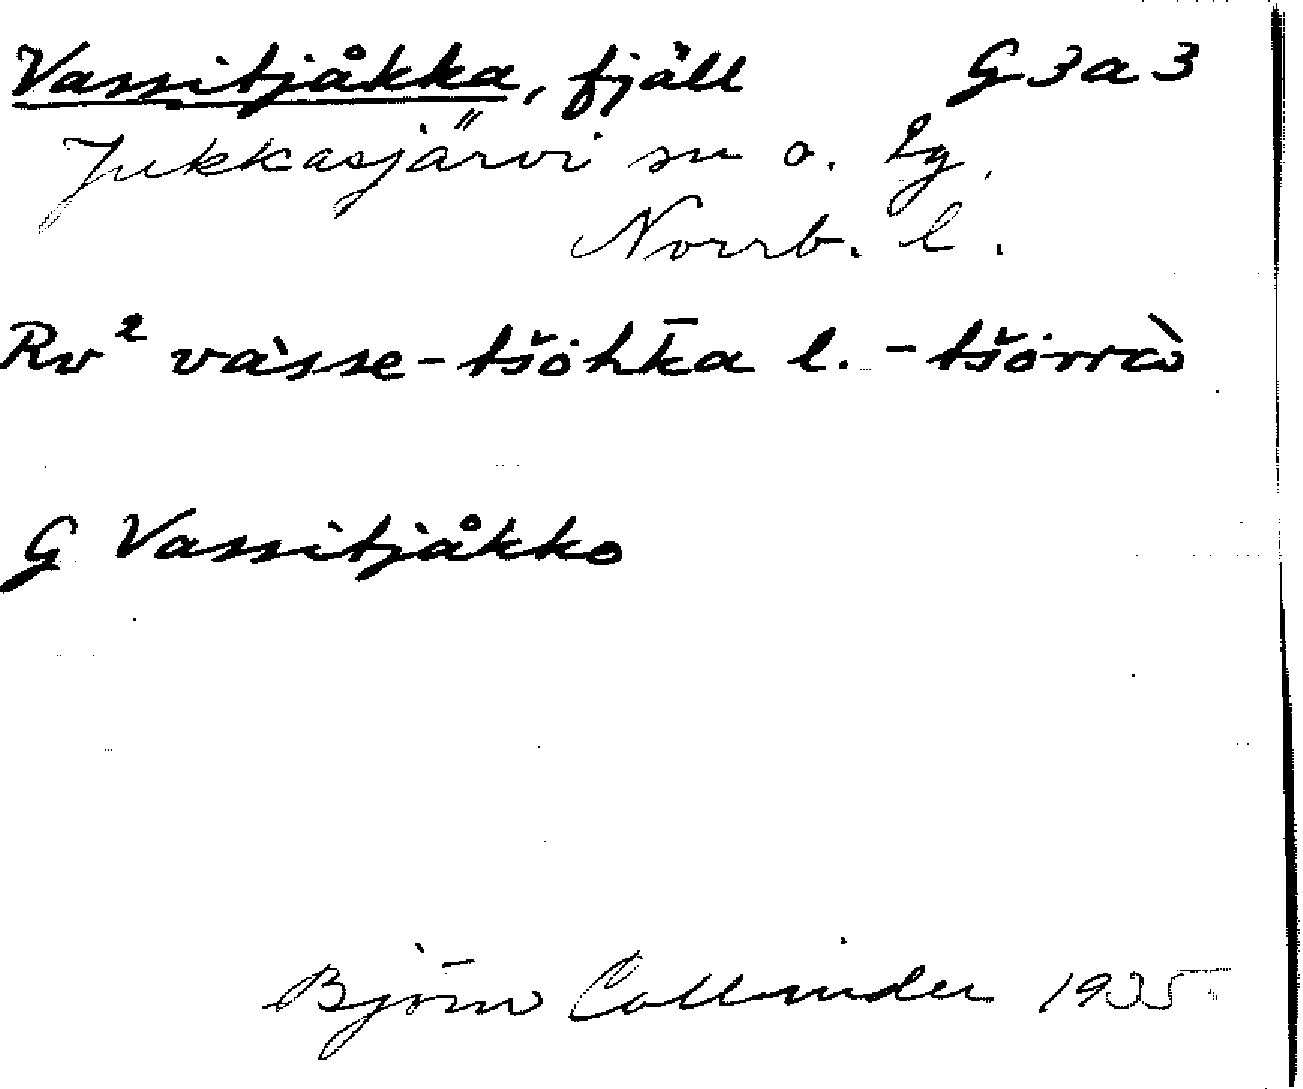 Vassitjåkka, fjäll G3a3
Jukkasjärvi sn o. Lg.
Norrb. l.
Rv² vàsse-tšȯhk̄a l. -tšȯrrὼ
G Vassitjåkko
Björn Collinder 1935